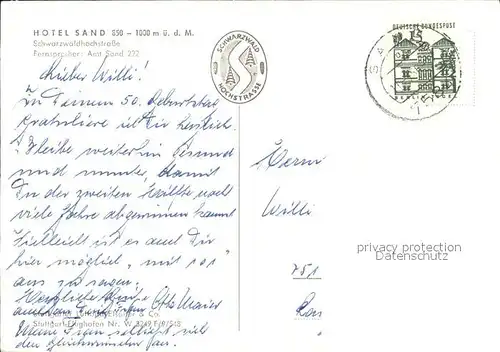 HOTEL SAND 850 – 1000 m ü. d. M.
Schwarzwaldhochstraße
Fernsprecher: Amt Sand 222
SCHWARZWALD
HOCHSTRASSE
DEUTSCHE BUNDESPOST
15
Lieber Willi!
Zu Deinem 50. Geburtstag
gratuliere ich Dir herzlich.
Bleibe weiterhin gesund
und munter, damit
Du der zweiten Hälfte noch
viele Jahre abgewinnen kannst
Vielleicht ist es auch Dir
hier möglich, "mit 101"
aus zu sagen.
Herzliche Grüße Otto Maier
auch von
& Co.
Stuttgart-Flughafen Nr. W
Meine Frau schließt sich
den Glückwünschen an.
Herrn
Willi
751
privacy protection
Datenschutz